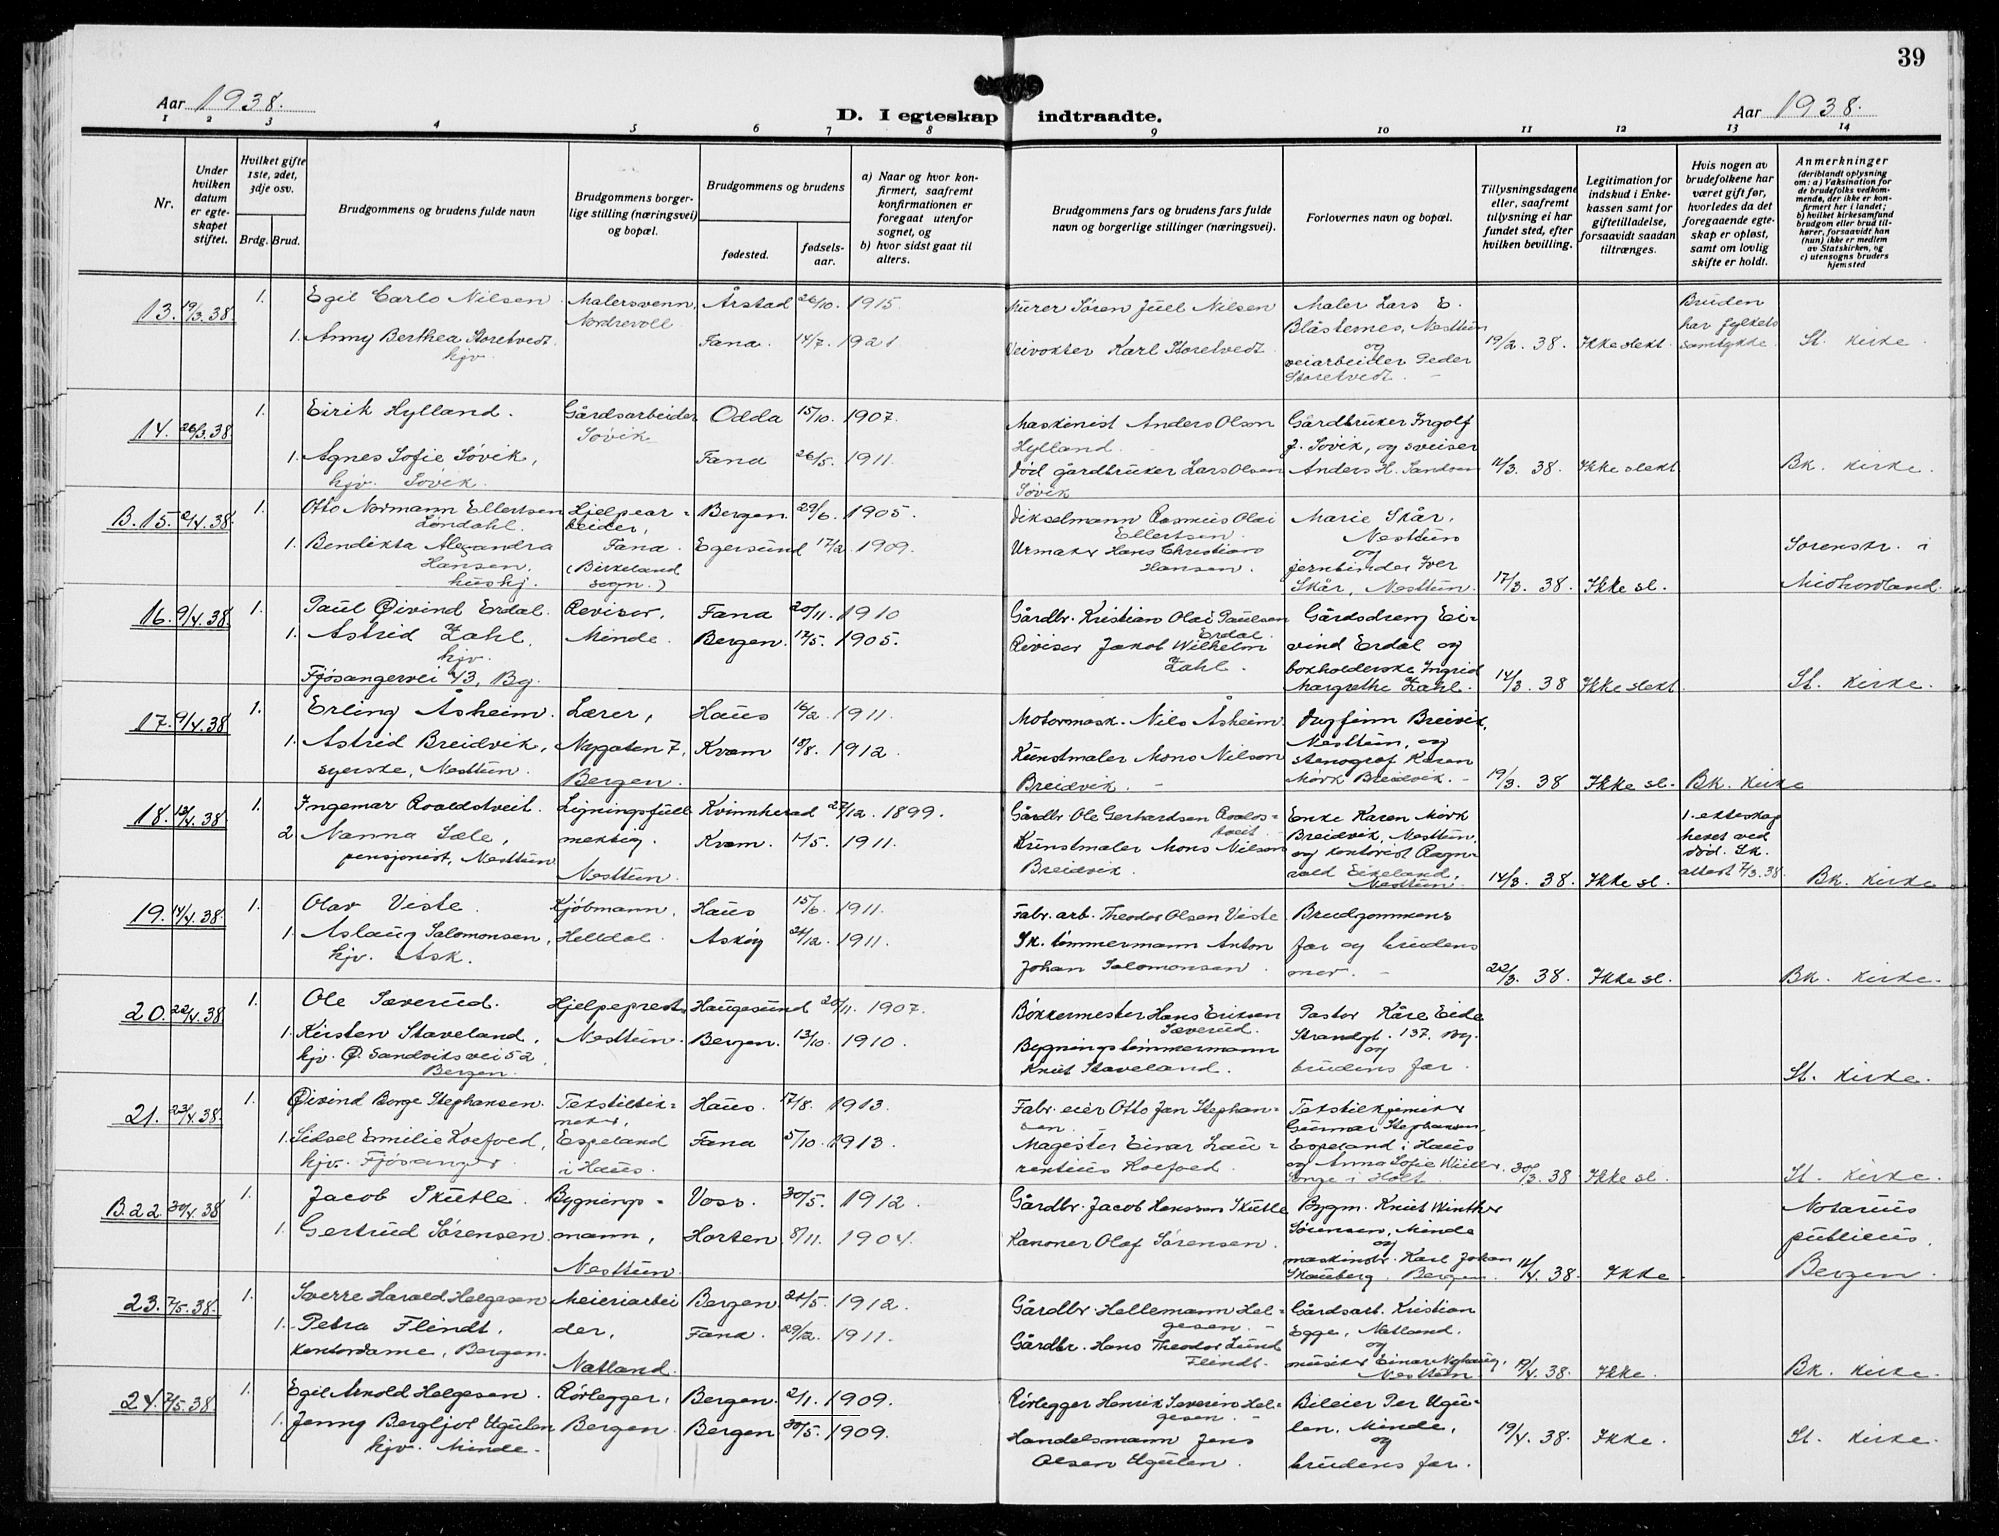 39
Aar 1938.
D. I egteskap indtraadte.
Aar 1938.
1 2 3 4 5 6 7 8 9 10 11 12 13 14
Nr.
Under hvilken datum er egteskapet stiftet.
Hvilket gifte 1ste, 2det, 3dje osv.
Brdg. Brud.
Brudgommens og brudens fulde navn
Brudgommens borgerlige stilling (næringsvei) og bopæl.
Brudgommens og brudens
fødested.
fødselsaar.
a) Naar og hvor konfirmert, saafremt konfirmationen er foregaat utenfor sognet, og
b) hvor sidst gaat til alters.
Brudgommens fars og brudens fars fulde navn og borgerlige stillinger (næringsvei).
Forlovernes navn og bopæl.
Tillysningsdagene eller, saafremt tillysning ei har fundet sted, efter hvilken bevilling.
Legitimation for indskud i Enkekassen samt for giftetilladelse, forsaavidt saadan tiltrænges.
Hvis nogen av brudefolkene har været gift før, hvorledes da det foregaaende egteskap er opløst, samt om lovlig skifte er holdt.
Anmerkninger
(deriblandt oplysning om: a) Vaksination for de brudefolks vedkommende, der ikke er konfirmert her i landet; b) hvilket kirkesamfund brudgom eller brud tilhører, forsaavidt han (hun) ikke er medlem av Statskirken, og c) utensogns bruders hjemsted
13. 19/3.38. 1. Egil Carlo Nilsen. Malersvenn, Nordrevoll Årstad 26/10. 1915
1. Anny Berthea Storetvedt hjv. Fana. 14/7. 1921.
Murer Søren Juel Nilsen
Veivokter Karl Storetvedt.
Maler Lars E. Blåsternes, Nesttun og veiarbeider Peder Storetvedt.
19/2. 38. Ikke slekt. Bruden har fylkets samtykke. St. kirke
14. 26/3.38 1. Eirik Hylland. Gårdsarbeider Søvik Odda 15/10. 1907.
1. Agnes Sofie Søvik, hjv. Søvik. Fana 26/5. 1911.
Maskinist Anders Olson Hylland.
Død gårdbruker Lars Olsen Søvik
Gårdbruker Ingolf J. Søvik, og sveiser Anders H. Sandven
11/3. 38. Ikke slekt Bk. kirke.
B. 15. 2/4.38. 1. Otto Normann Ellertsen Løndahl. Hjelpearbeider, Fana. (Birkeland sogn.) Bergen. 29/6. 1905.
1. Bendikta Alexandra Hansen, hushj. Egersund 17/2. 1909.
Dikselmann Rasmus Olai Ellertsen.
Urmaker Hans Christian Hansen.
Marie Skår, Nesttun og jernbinder Iver Skår, Nesttun.
17/3. 38. Ikke sl. Sorenskr. i Midhordland.
16. 9/4.38. 1. Paul Øivind Erdal. Revisor, Minde. Fana 20/11. 1910
1. Astrid Zahl, hjv. Fjøsangervei 43, Bg. Bergen. 17/5. 1905.
Gårdbr. Kristian Olai Paulsen Erdal.
Revisor Jakob Wilhelm Zahl.
Gårdsdreng Eivind Erdal og bokholderske Ingrid Margrethe Zahl.
14/3. 38 Ikke slekt. St. kirke.
17. 9/4.38 1. Erling Åsheim. Lærer, Nygaten 7, Bergen. Haus 16/2. 1911.
1. Astrid Breidvik, syerske, Nesttun. Kvam 18/8. 1912.
Motormask. Nils Åsheim.
Kunstmaler Mons Nilsen Breidvik.
Dagfinn Breivik, Nesttun, og stenograf Karen Mørk Breidvik.
19/3. 38 Ikke sl. Bk. kirke
18. 13/4.38 1. Ingemar Roaldstveit. Ligningsfullmektig, Nesttun. Kvinnherad 27/12. 1899.
2 Nanna Sæle, pensjonist, Nesttun Kvam. 17/5. 1911.
Gårdbr. Ole Gerhardsen Roaldstveit.
Kunstmaler Mons Nilson Breidvik.
Enke Karen Mørk Breidvik, Nesttun, og kontorist Ragnvald Eikeland, Nesttun.
14/3. 38. Ikke sl. 1. ekteskap hevet ved død. Sk. attest 7/3. 38. Bk. kirke
19. 14/4.38. 1. Olav Viste. Kjøbmann, Helldal. Haus 15/6. 1911.
1. Aslaug Salomonsen, hjv. Ask. Askøy 24/12. 1911.
Fabr. arb. Theodor Olsen Viste
Sk. tømmermann Anton Johan Salomonsen.
Brudgommens far og brudens mor.
22/3. 38. Ikke sl. Bk. kirke.
20. 22/4.38 1. Ole Sæverud. Hjelpeprest, Nesttun. Haugesund 20/11. 1907.
1. Kirsten Staveland, hjv. Ø. Sandviksvei 52, Bergen. Bergen. 13/10. 1910.
Bøkkermester Hans Eriksen Sæverud.
Bygningstømmermann Knut Staveland.
Pastor Kåre Eide Strandgt. 137. Bg. og brudens far.
St. kirke.
21. 23/4.38. 1. Øivind Borge Stephansen. Tekstiltekniker, Espeland i Haus. Haus. 17/8. 1913.
1. Sidsel Emilie Koefoed, hjv. Fjøsanger. Fana 5/10. 1913.
Fabr. eier Otto Jan Stephansen.
Magister Einar Laurentius Koefoed.
Tekstilkjemiker Gunnar Stephansen, Espeland i Haus og Anna Sofie
30/3. 38 Ikke sl. St. kirke.
B. 22. 30/4.38 1. Jacob Skutle. Bygningsmann, Nesttun. Voss. 30/5. 1912.
1. Gertrud Sørensen. Horten. 8/11. 1904.
Gårdbr. Jacob Hanssen Skutle
Kanoner Olaf Sørensen.
Bygm. Knut Winther Sørensen, Minde og maskindr. Karl Johan Skauberg. Bergen.
11/4. 38. Ikke. Notarius publicus. Bergen.
23. 7/5.38. 1. Sverre Harald Helgesen Meieriarbeider, Natland. Bergen. 21/5. 1912.
1. Petra Flindt, kontordame, Bergen. Fana. 29/12. 1911.
Gårdbr. Hellemann Helgesen.
Gårdbr. Hans Theodor Lund Flindt.
Gårdsarb. Kristian Egge, Natland. og musiker Einar Nyhaug, Nesttun.
19/4. 38. Ikke. Bk. kirke.
24. 7/5.38 1. Egil Arnold Helgesen. Rørlegger, Bergen. Bergen. 2/1. 1909.
1. Jenny Bergljot Ugulen hjv. Minde. Bergen 30/5. 1909.
Rørlegger Henrik Severin Helgesen.
Handelsmann Jens Olsen Ugulen.
Bileier Per Ugulen, Minde, og brudens far.
19/4. 38. Ikke. St. kirke.